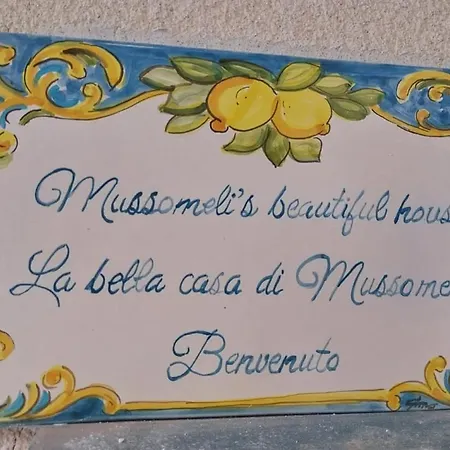 Mussomeli's beautiful hous
La bella casa di Mussome
Benvenuto